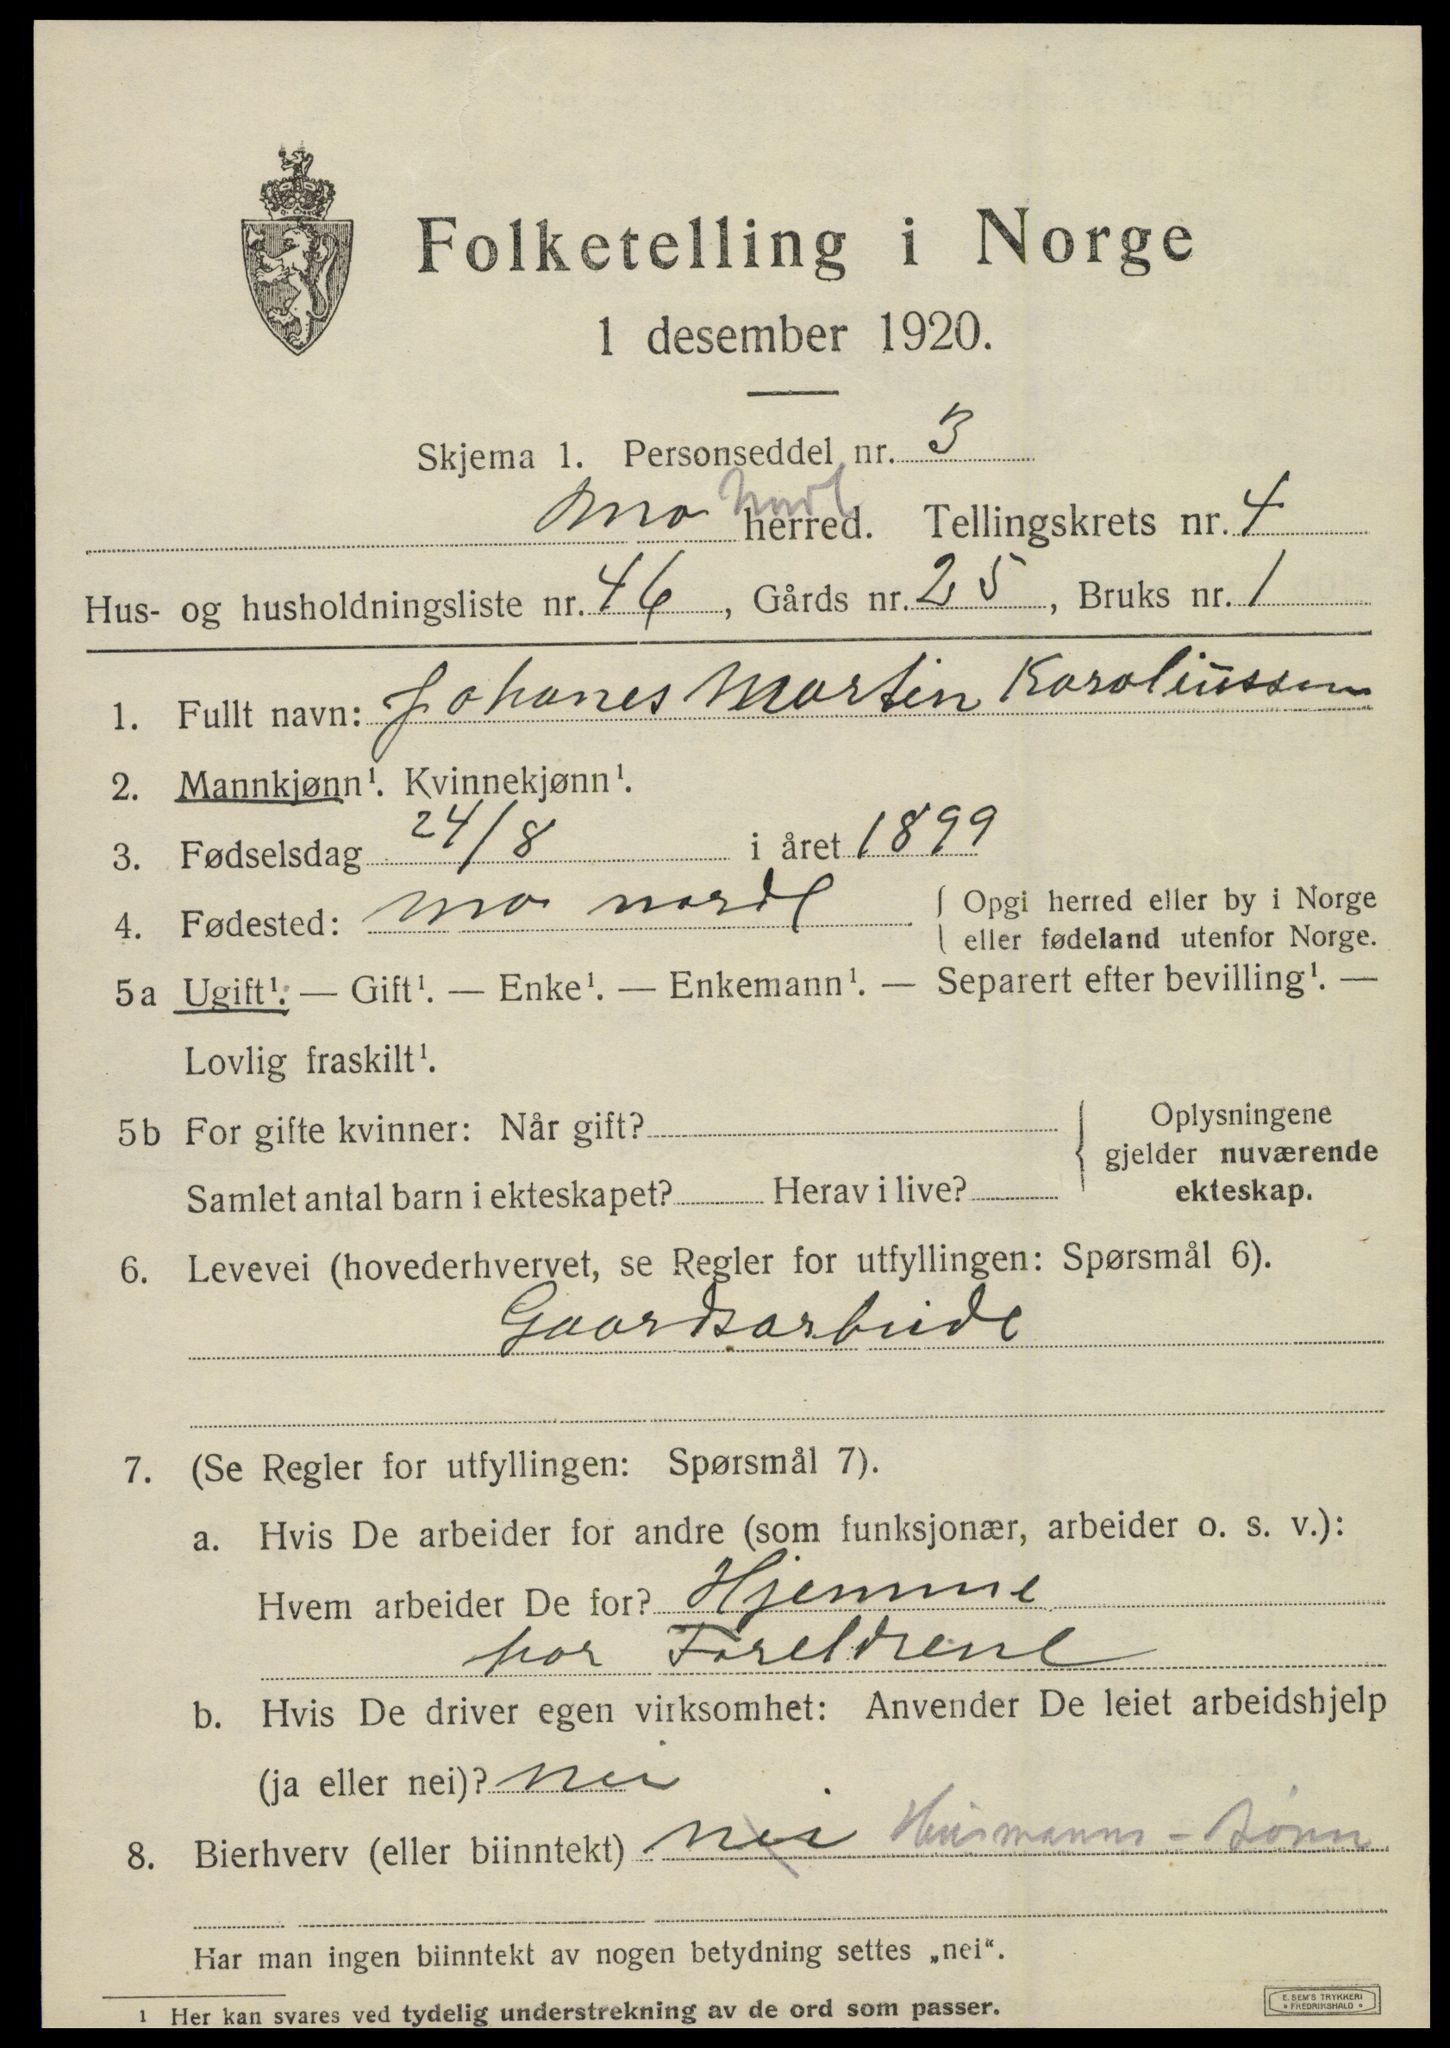 Folketelling i Norge
1 desember 1920.
Skjema 1. Personseddel nr. 3
Mo Nordl herred. Tellingskrets nr. 4
Hus- og husholdningsliste nr. 46, Gårds nr. 25, Bruks nr. 1
1. Fullt navn: Johanes Martin Karoliussen
2. Mannkjønn¹. Kvinnekjønn¹.
3. Fødselsdag 24/8 i året 1899
4. Fødested: Mo nordl { Opgi herred eller by i Norge
eller fødeland utenfor Norge.
5a Ugift¹. — Gift¹. — Enke¹. — Enkemann¹. — Separert efter bevilling¹. —
Lovlig fraskilt¹.
5b For gifte kvinner: Når gift? { Oplysningene
gjelder nuværende
Samlet antal barn i ekteskapet? Herav i live? ekteskap.
6. Levevei (hovederhvervet, se Regler for utfyllingen: Spørsmål 6).
Gaardsarbeide
7. (Se Regler for utfyllingen: Spørsmål 7).
a. Hvis De arbeider for andre (som funksjonær, arbeider o. s. v.):
Hvem arbeider De for? Hjemme
hos Foreldrene
b. Hvis De driver egen virksomhet: Anvender De leiet arbeidshjelp
(ja eller nei)? nei
8. Bierhverv (eller biinntekt) nei Husmanns - sønn
Har man ingen biinntekt av nogen betydning settes „nei“.
1 Her kan svares ved tydelig understrekning av de ord som passer.
E. SEM'S TRYKKERI
FREDRIKSHALD